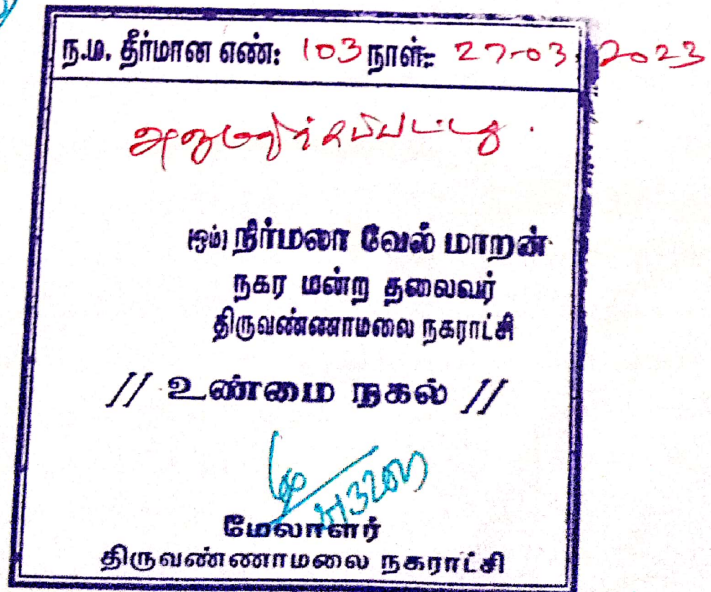 ந.ம. தீர்மான எண்: 103 நாள்:- 27-03-2023
அனுமதிக்கப்பட்டது.
(ஒம்) நிர்மலா வேல் மாறன்
நகர மன்ற தலைவர்
திருவண்ணாமலை நகராட்சி
// உண்மை நகல் //
மேலாளர்
திருவண்ணாமலை நகராட்சி